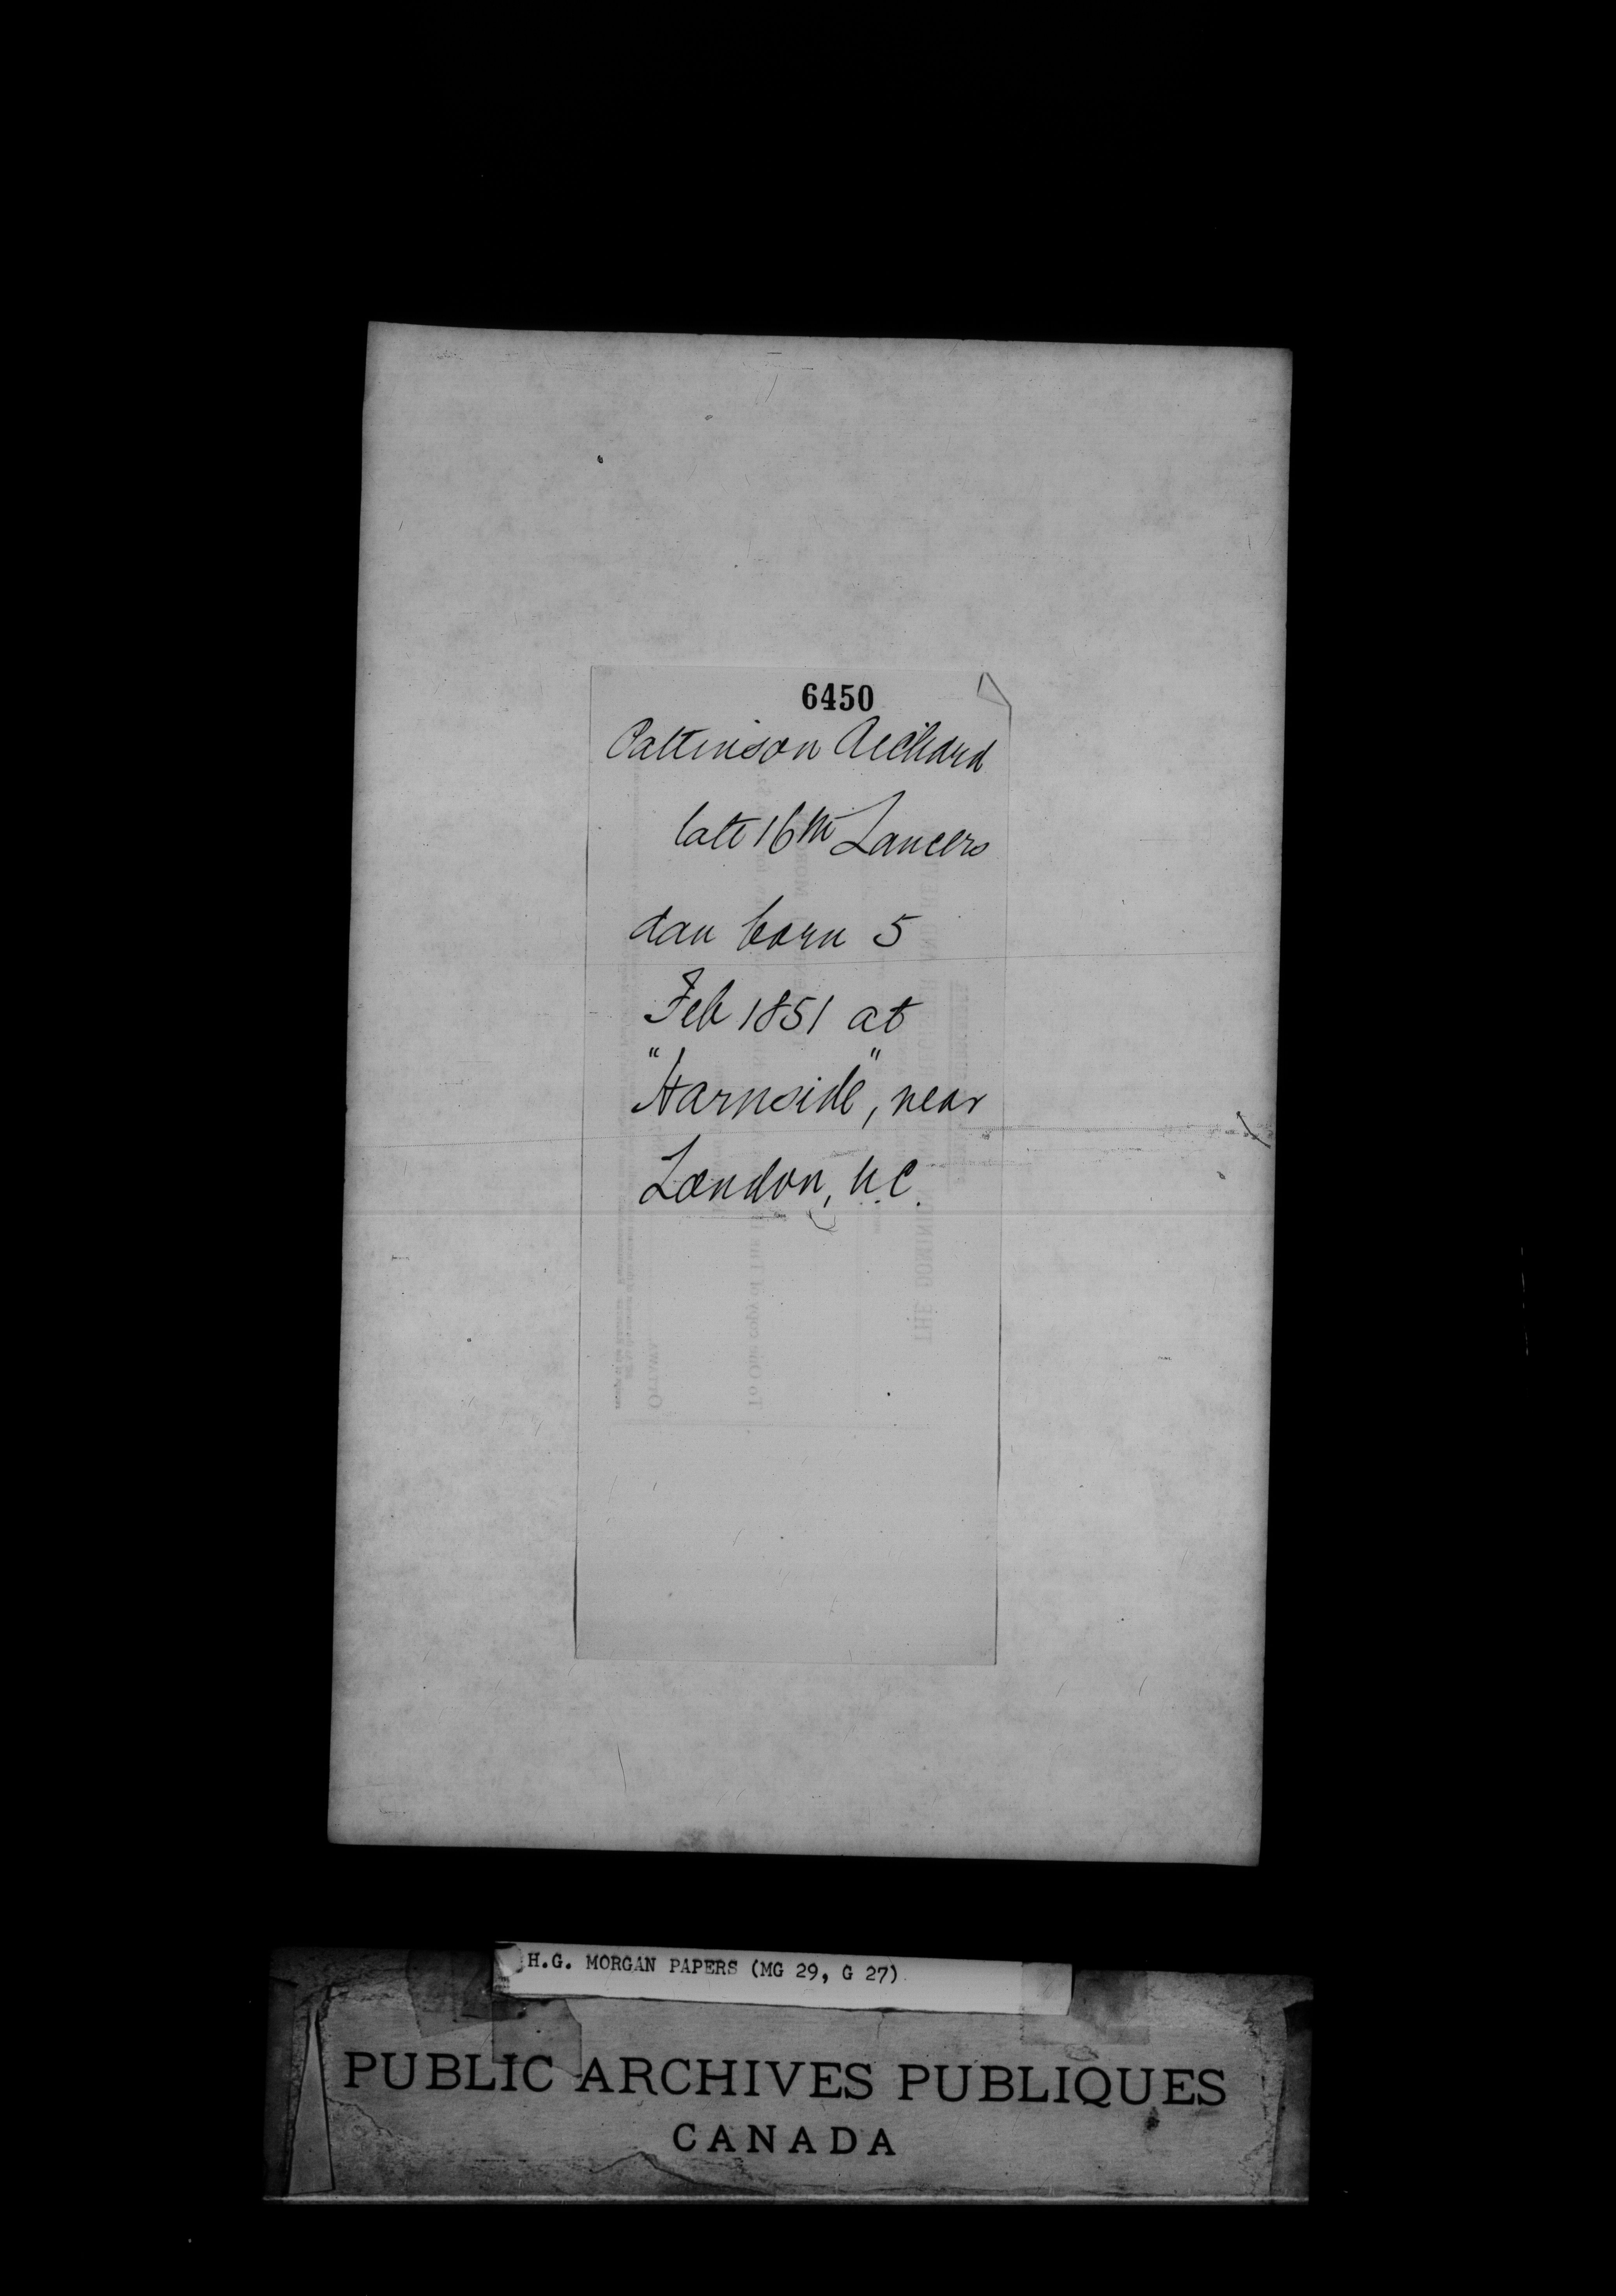 6450
Pattinson Richard
late 16th Lancers
dau born 5
Feb 1851 at
"Harnside", near
London, U.C.
H.G. MORGAN PAPERS (MG 29, G 27)
PUBLIC ARCHIVES PUBLIQUES
CANADA